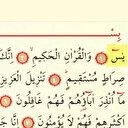 بِسْ
يسٓ ۝ وَالْقُرْآنِ الْحَكِيمِ ۝ إِنَّكَ
صِرَاطٍ مُسْتَقِيمٍ ۝ تَنْزِيلَ الْعَزِيزِ
مَا أُنْذِرَ آبَاؤُهُمْ فَهُمْ غَافِلُونَ ۝
أَكْثَرِهِمْ فَهُمْ لَا يُؤْمِنُونَ ۝ إِنَّا جَ